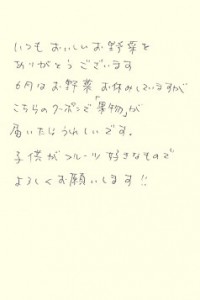 いつも おいしい お野菜を
ありがとう ございます
6月は お野菜 お休みしていますが
こちらの クーポンで「果物」が
届いたら うれしいです。
子供が フルーツ 好きなもので
よろしく お願いします!!